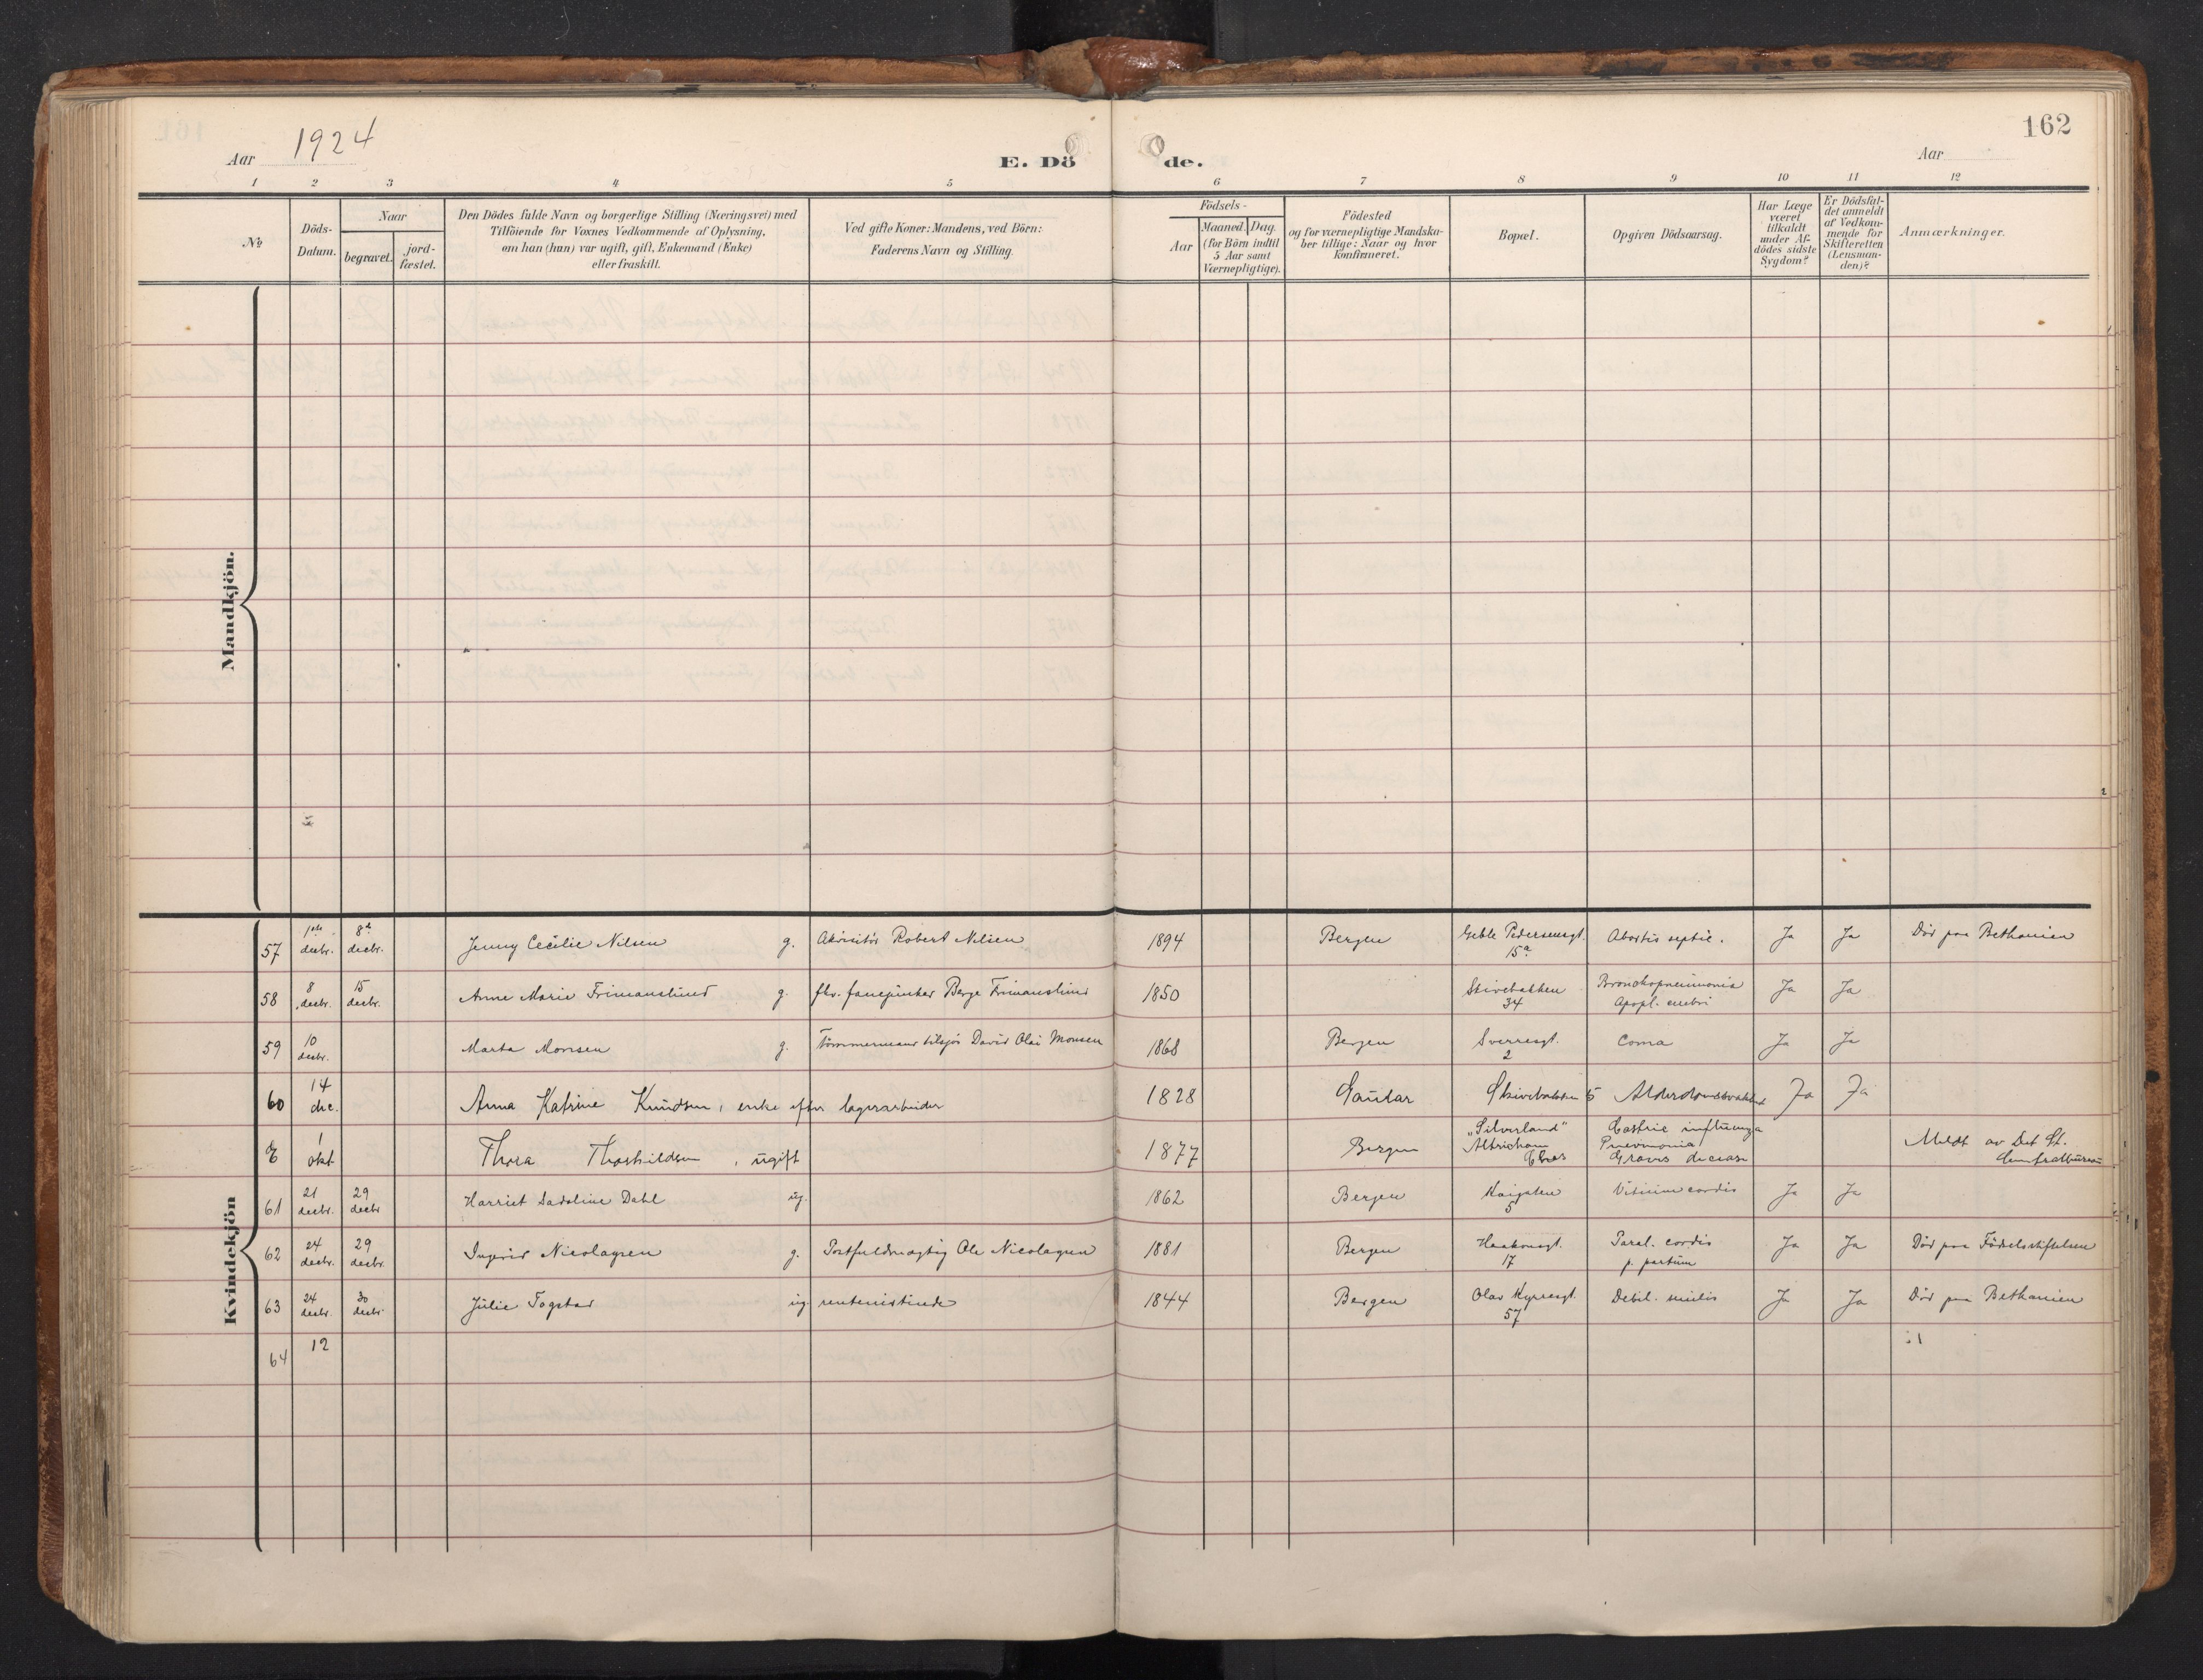 162
Aar 1924
E. Dö de.
Aar
1 2 3 4 5 6 7 8 9 10 11 12
No
Döds-
Datum.
Naar
begravet.
jord-
fæstet.
Den Dödes fulde Navn og borgerlige Stilling (Næringsvei) med
Tilföiende for Voxnes Vedkommende af Oplysning,
om han (hun) var ugift, gift, Enkemand (Enke)
eller fraskilt.
Ved gifte Koner: Mandens, ved Börn:
Faderens Navn og Stilling.
Födsels-
Aar
Maaned. Dag.
(for Börn indtil
5 Aar samt
Værnepligtige).
Födested
og for værnepligtige Mandska-
ber tillige: Naar og hvor
konfirmeret.
Bopæl.
Opgiven Dödsaarsag.
Har Læge
været
tilkaldt
under Af-
dödes sidste
Sygdom?
Er Dödsfal-
det anmeldt
af Vedkom-
mende for
Skifteretten
(Lensman-
den)?
Anmærkninger.
Mandkjön.
Kvindekjön
57 1ste decbr. 8de decbr. Jenny Cecilie Nilsen g. Akvisitör Robert Nilsen 1894 Bergen Geble Pedersensgt. 15a Abortus septic. Ja Ja Död paa Bethanien
58 8 decbr. 15 decbr. Anne Marie Frimanslund g. fhv. fanejunker Berge Frimanslund 1850 Skivebakken 34 Bronchopneumonia Apopl. cerebri Ja Ja
59 10 decbr. Marta Monsen g. Tömmermand tilsjös David Olai Monsen 1868 Bergen Sverresgt. 2 Coma Ja Ja
60 14 dec. Anna Katrine Knudsen, enke efter lagerarbeider 1828 Gaular Skivebakken 5 Alderdomssvakhet Ja Ja
1 okt Thora Thorkildsen, ugift 1877 Bergen "Silverland" Altricham Ches Gastric influenza Pneumonia Graves decease Meldt av Det St. Centralbureau
61 21 decbr. 29 decbr Harriet Sadoline Dahl ug. 1862 Bergen Kaigaten 5 Vitium cordis Ja Ja
62 24 decbr. 29 decbr. Ingrid Nicolaysen g. Postfuldmægtig Ole Nicolaysen 1881 Bergen Haakonsgt. 17 Paral. cordis p. partum Ja Ja Död paa Födselsstiftelsen
63 24 decbr. 30 decbr. Julie Fogstad ug. rentenistinde 1844 Bergen Olav Kyrresgt. 57 Debil. senilis Ja Ja Död paa Bethanien
64 12